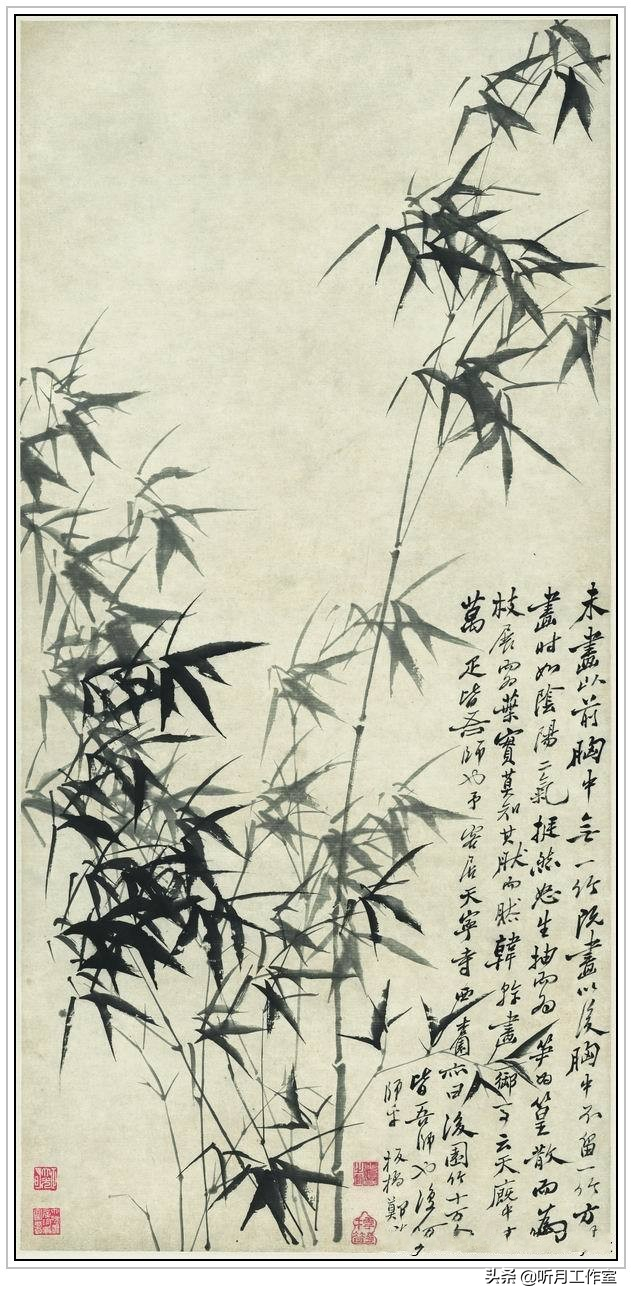 未畫以前胸中無一竹既畫以後胸中不留一竹方其
畫時如陰陽二氣挺然怒生抽而為筍為篁散而為
枝展而為葉實莫知其然而然韓幹畫御馬云天廄中十
萬疋皆吾師也予客居天寧寺西杏園亦曰後園竹十萬个
皆吾師也復何
師乎 板橋鄭燮
头条 @听月工作室